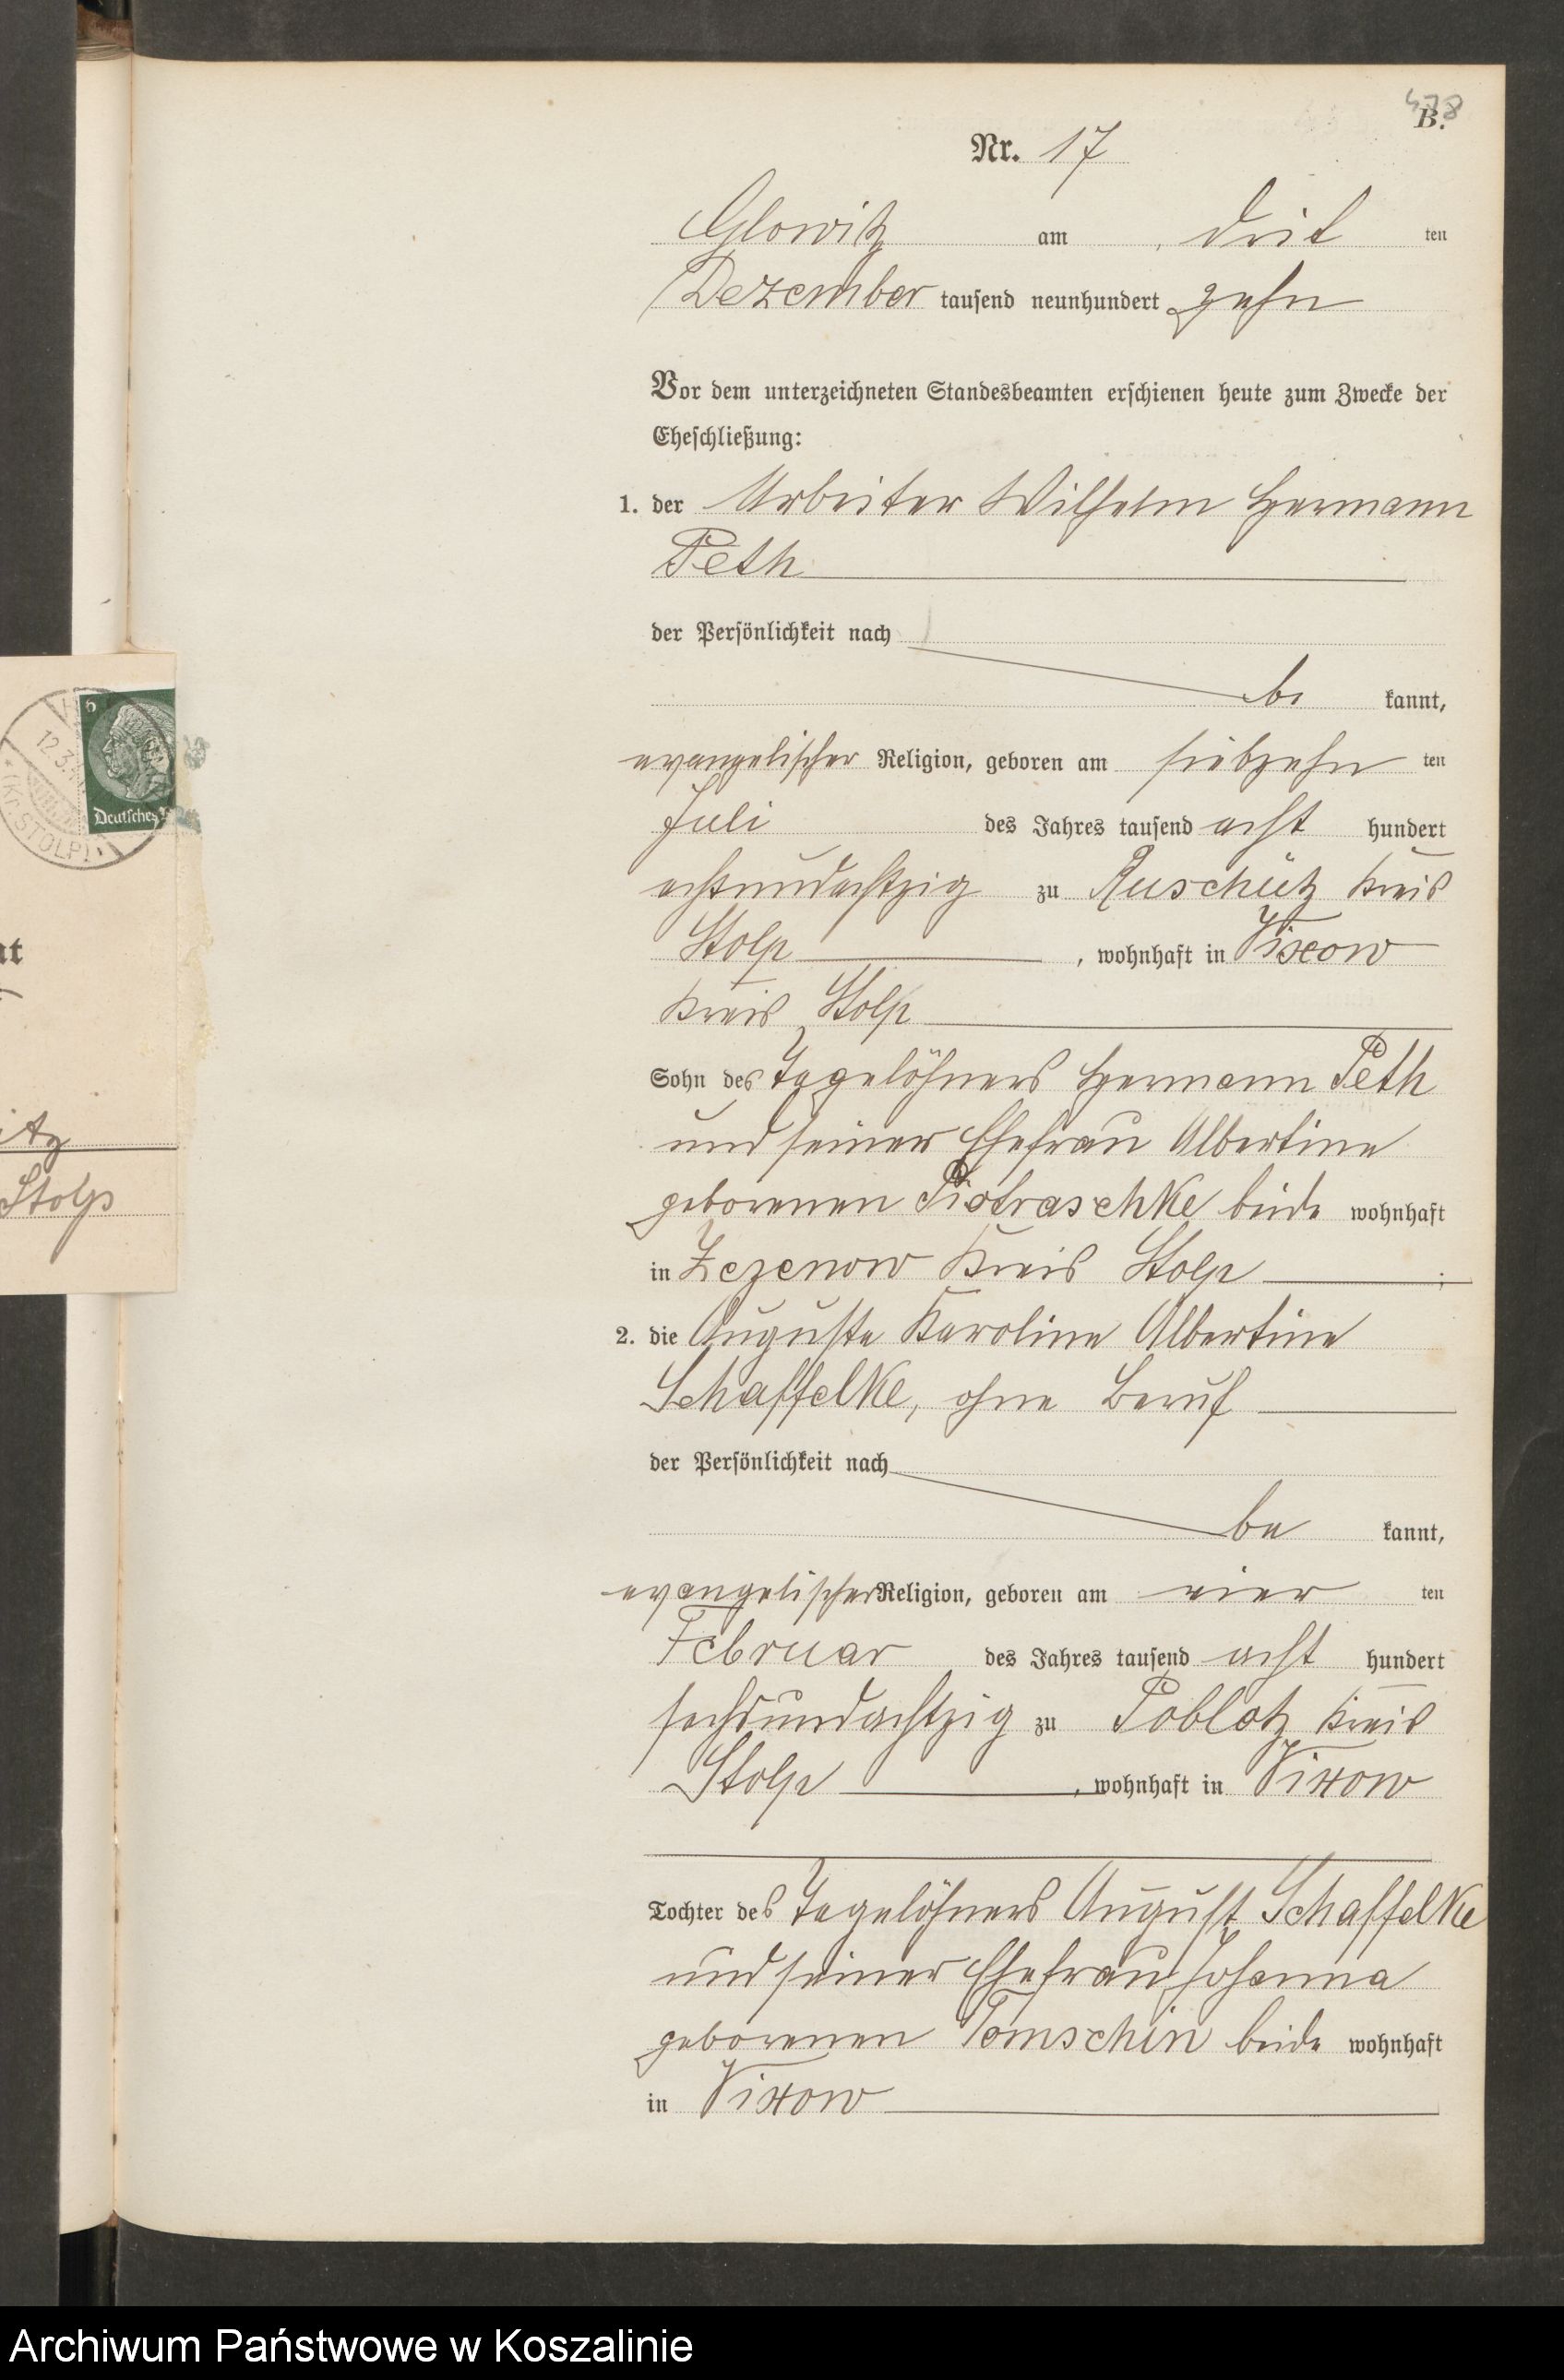 478
B.
Nr. 17
Glowitz am drit ten
Dezember tausend neunhundert zehn
Vor dem unterzeichneten Standesbeamten erschienen heute zum Zwecke der
Eheschließung:
1. der Arbeiter Wilhelm Hermann
Peth
der Persönlichkeit nach
be kannt,
evangelischer Religion, geboren am siebzehn ten
Juli des Jahres tausend acht hundert
achtundachtzig zu Ruschütz Kreis
Stolp , wohnhaft in Vixow
Kreis Stolp
Sohn des Tagelöhners Hermann Peth
und seiner Ehefrau Albertine
geborenen Piotraschke beide wohnhaft
in Zezenow Kreis Stolp ;
2. die Auguste Karoline Albertine
Schaffelke, ohne Beruf
der Persönlichkeit nach
be kannt,
evangelischer Religion, geboren am vier ten
Februar des Jahres tausend acht hundert
sechsundachtzig zu Poblotz Kreis
Stolp , wohnhaft in Vixow
Tochter des Tagelöhners August Schaffelke
und seiner Ehefrau Johanna
geborenen Tomschin beide wohnhaft
in Vixow
6
Deutsches
12.3.
(Kr. STOLP)
at
itz
Stolp
Archiwum Państwowe w Koszalinie